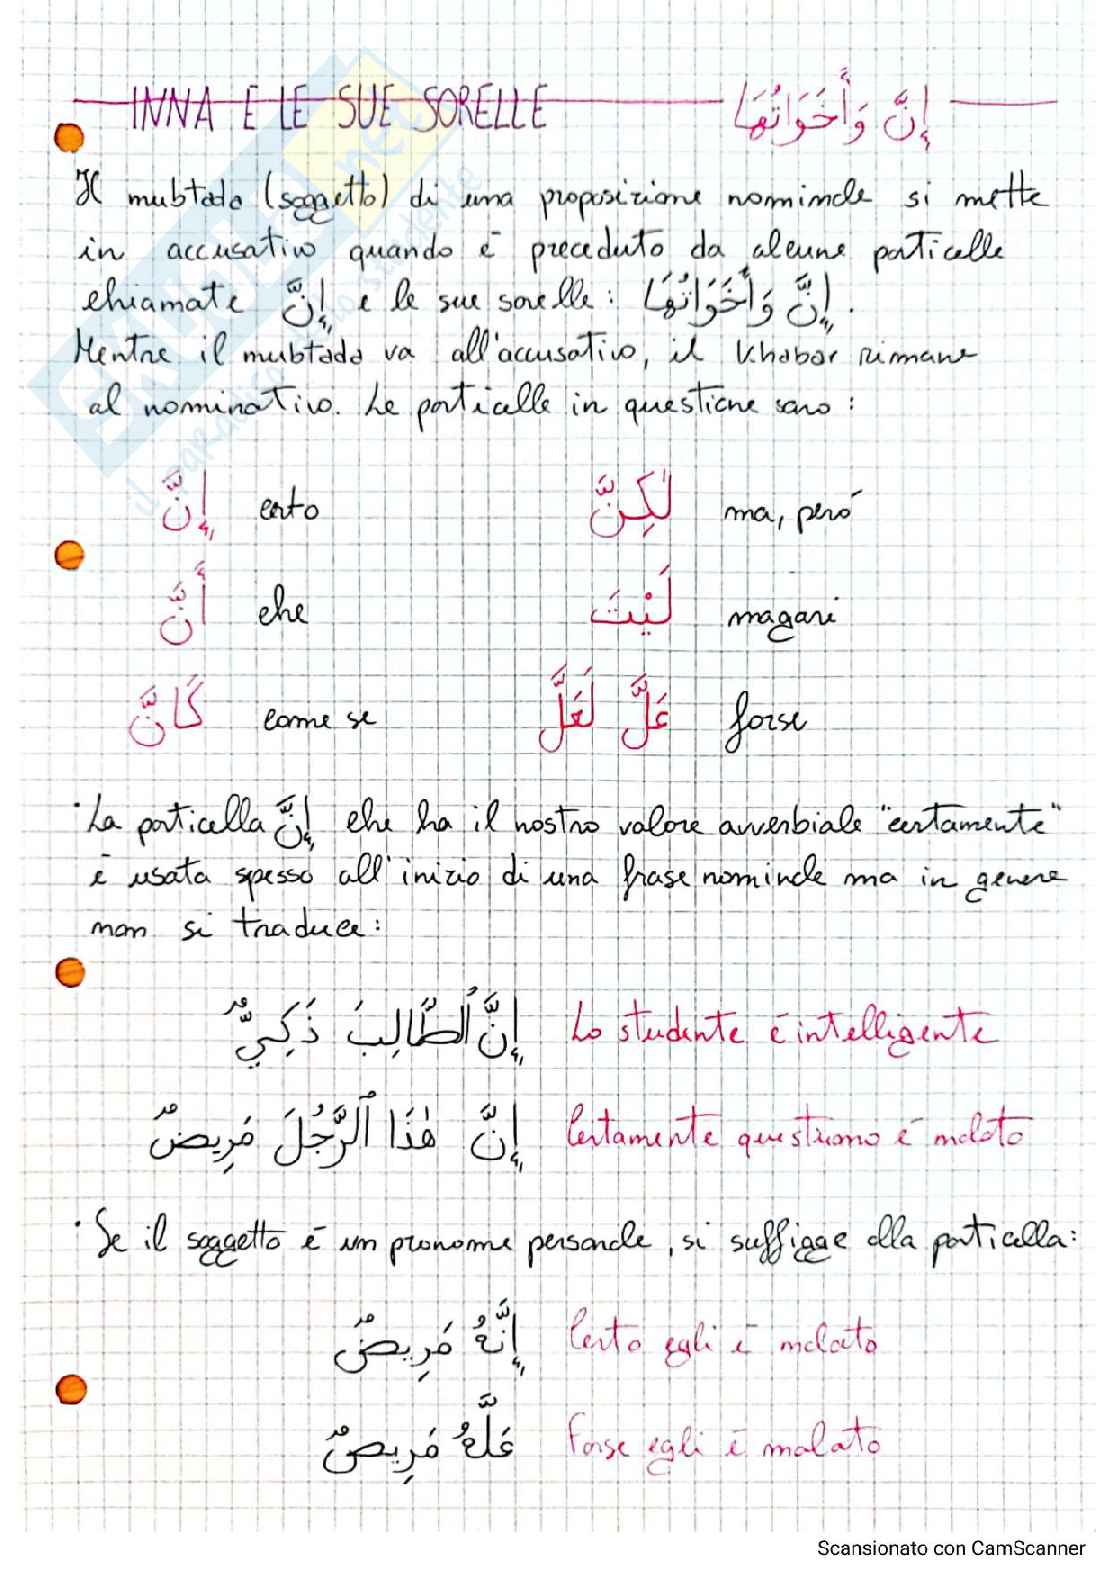 INNA E LE SUE SORELLE إِنَّ وَأَخَوَاتُهَا
Il mubtada (soggetto) di una proposizione nominale si mette
in accusativo quando è preceduto da alcune particelle
chiamate إِنَّ e le sue sorelle: إِنَّ وَأَخَوَاتُهَا.
Mentre il mubtada va all'accusativo, il khabar rimane
al nominativo. Le particelle in questione sono:
إِنَّ certo لٰكِنَّ ma, però
أَنَّ che لَيْتَ magari
كَانَّ come se عَلَّ لَعَلَّ forse
·La particella إِنَّ che ha il nostro valore avverbiale "certamente"
è usata spesso all'inizio di una frase nominale ma in genere
non si traduce:
إِنَّ ٱلطَّالِبَ ذَكِيٌّ Lo studente è intelligente
إِنَّ هٰذَا ٱلرَّجُلَ مَرِيضٌ Certamente quest'uomo è malato
·Se il soggetto è un pronome personale, si suffigge alla particella:
إِنَّهُ مَرِيضٌ Certo egli è malato
عَلَّهُ مَرِيضٌ Forse egli è malato
Scansionato con CamScanner